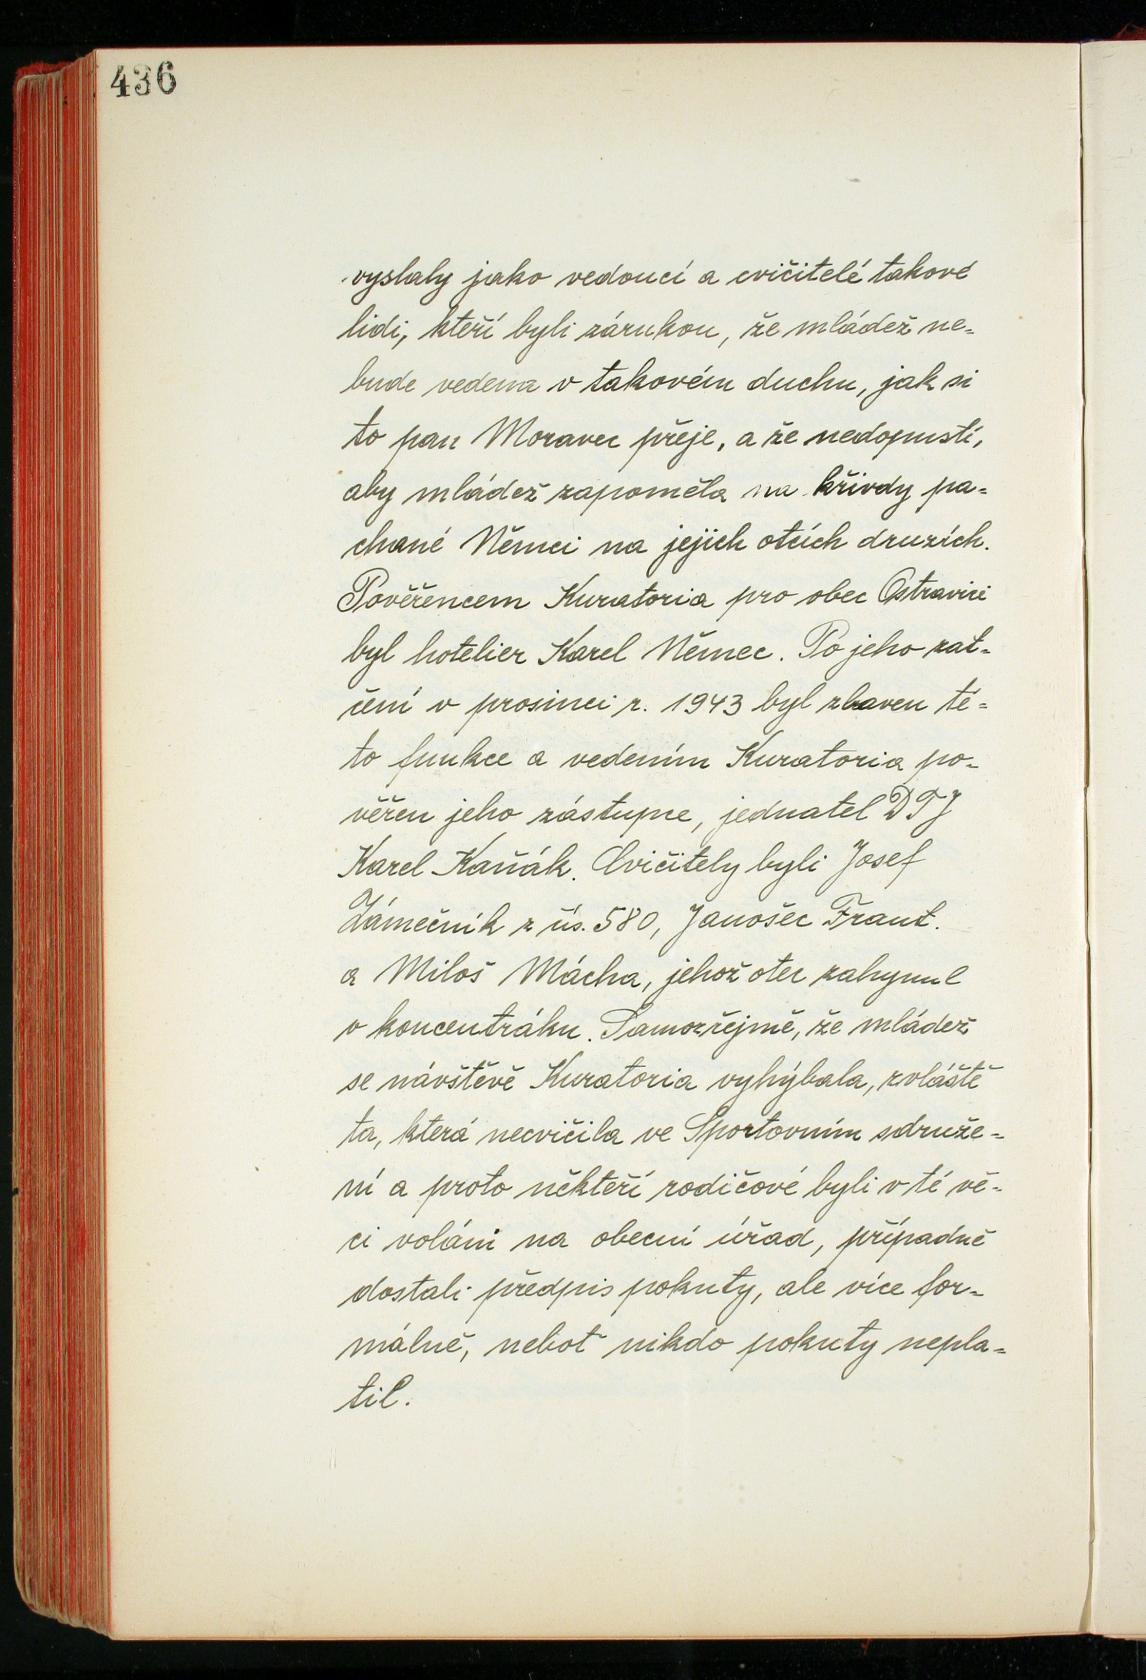 436
vyslaly jako vedoucí a cvičitelé takové
lidi, kteří byli zárukou, že mládež ne=
bude vedena v takovém duchu, jak si
to pan Moravec přeje, a že nedopustí,
aby mládež zapoměla na křivdy pa=
chané Němci na jejich otcích druzích.
Pověřencem Kuratoria pro obec Ostravici
byl hotelier Karel Němec. Po jeho zat=
čení v prosinci r. 1943 byl zbaven té=
to funkce a vedením Kuratoria po=
věřen jeho zástupce, jednatel DTJ
Karel Kaňák. Cvičitely byli Josef
Zámečník z čís. 580, Janošec Frant.
a Miloš Mácha, jehož otec zahynul
v koncentráku. Samozřejmě, že mládež
se návštěvě Kuratoria vyhýbala, zvláště
ta, která necvičila ve Sportovním sdruže=
ní a proto někteří rodičové byli v té vě=
ci voláni na obecní úřad, případně
dostali předpis pokuty, ale více for=
málně, neboť nikdo pokuty nepla=
til.